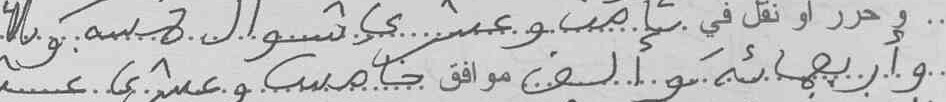 و حرر او نقل في ثامن و عشري شوال خمسه
وأربعمائه وألف موافق خامس وعشري